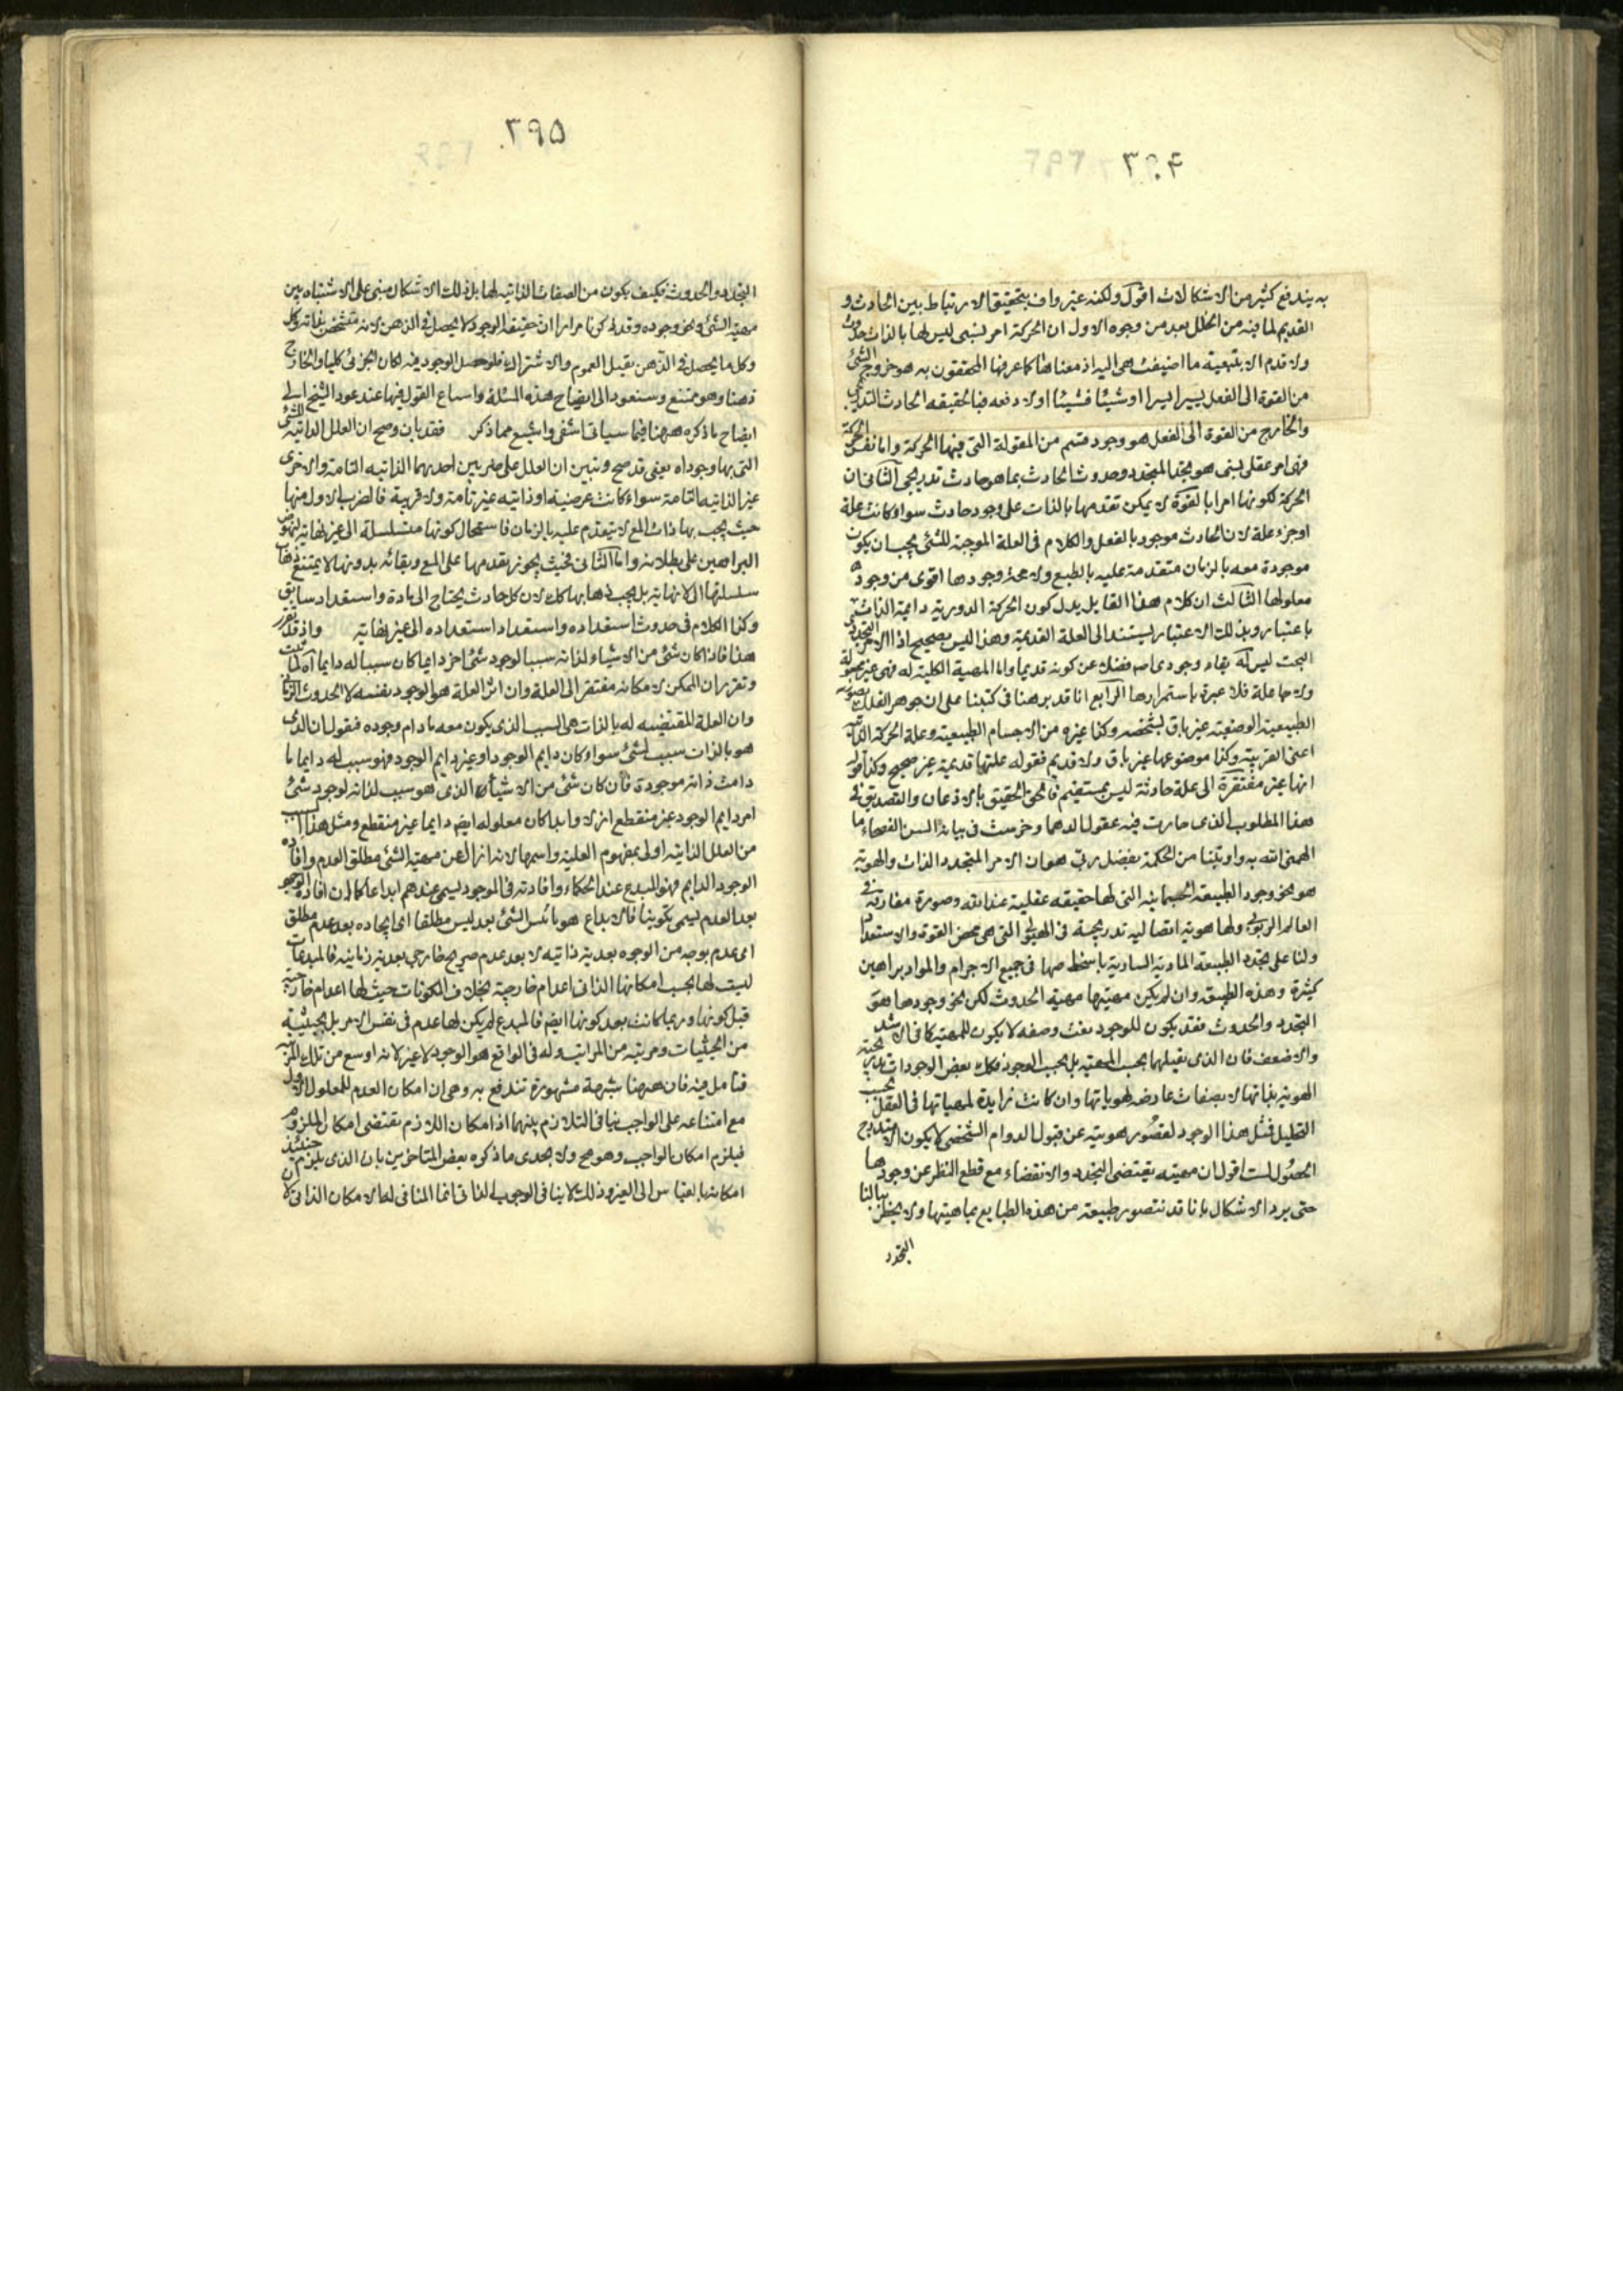 ٣٩۴
به يندفع كثير من الاشكالات اقول ولكنه غير واف بتحقيق الارتباط بين الحادث و
القديم لما فيه من الخلل بعد من وجوه الاول ان الحركة امر نسبى ليس لها بالذات حدوث
ولا قدم الا بتبعية ما اضيفت هى اليه اذ معناها كما عرفها المحققون به هو خروج الشئ
من القوة الى الفعل يسيرا يسيرا او شيئا فشيئا او لا دفعه فبالحقيقه الحادث التدريجى
والخارج من القوة الى الفعل هو وجود قسم من المقولة التى فيها الحركة واما نفس الحركة
فهى امر عقلى نسبى هو تجدد المتجدد وحدوث الحادث بما هو حادث تدريجى الثانى ان
الحركة لكونها امرا بالقوة لا يمكن تقدمها بالذات على وجود حادث سواء كانت علة
او جزء علة لان الحادث موجود بالفعل والكلام فى العلة الموجبة للشئ يجب ان يكون
موجودة معه بالزمان متقدمة عليه بالطبع ولا محة وجودها اقوى من وجود
معلولها الثالث ان كلام هذا القايل يدل كون الحركة الدورية دايمة الذات
باعتبار وبذلك الاعتبار يستند الى العلة القديمة وهذا ليس بصحيح اذ الامر التجددى
البحت ليس له بقاء وجودى اصم فضلا عن كونه قديما واما المهية الكلية له فهى غير مجعولة
ولا جاعلة فلا عبرة باستمرارها الرابع انا قد برهنا فى كتبنا على ان جوهر الفلك بصورته
الطبيعية الوضعية غير باق بشخصه وكذا غيره من الاجسام الطبيعية وعلة الحركة الذاتية
اعنى القريبة وكذا موضوعها غير باق ولا قديم فقوله علتها قديمة غير صحيح وكذا قوله
انها غير مفتقرة الى علة حادثة ليس بمستقيم فالحق الحقيق بالاذعان والتصديق فى
هذا المطلوب الذى حارت فيه عقول الدهما وخرست فى بيانه السن الفصحاء ما
الهمنى الله به واوتينا من الحكمة بفضل ربى هو ان الامر المتجدد الذات والهوية
هو نحو وجود الطبيعة الجسمانيه التى لها حقيقه عقلية عند الله وصورة مفارقة فى
العالم الربوبى ولها هوية اتصاليه تدريجية فى الهيولى التى هى محض القوة والاستعداد
ولنا على تجدد الطبيعه المادية السارية فى جميع الاجرام والمواد براهين
كثيرة وهذه الطبيعه وان لم يكن مهيتها مهية الحدوث لكن نحو وجودها هو
التجدد والحدوث فقد يكون للوجود نعت وصفه لا يكون للمهية كما فى الاشد
والاضعف فان الذى يقبلهما بحسب المهية بل بحسب الوجود فكك بعض الوجودات تدريجية
الهوية بذاتها لا بصفات عارضه لهوياتها وان كانت زايدة لمهياتها فى العقل بحسب
التحليل فمثل هذا الوجود لقصور هويته عن قبول الدوام الشخصى لا يكون الا متدرج
الحصول لست اقول ان مهيته يقتضى التجدد والانقضاء مع قطع النظر عن وجودها
حتى يرد الاشكال بانا قد نتصور طبيعة من هذه الطبايع بماهيتها ولا يخطر ببالنا
التجدد
٣٩۵
التجدد والحدوث فكيف يكون من الصفات الذاتيه لها بل ذلك الاشكال مبنى على الاشتباه بين
مهية الشئ ونحو وجوده وقد ذكرنا مرارا ان حقيقه الوجود لا يحصل فى الذهن لانه متشخص بذاته وكل
وكل ما يحصل فى الذهن يقبل العموم والاشتراك فلو حصل الوجود فيه لكان الجزئى كليا والخارج
ذهنا وهو ممتنع وسنعود الى ايضاح هذه المسئلة واسباع القول فيها عند عود الشيخ الى
ايضاح ما ذكره ههنا فيما سياتى اشفى واشبع مما ذكر فقد بان وضح ان العلل الذاتية للشئ
التى بها وجوداه يعنى قد صح وتبين ان العلل على ضربين احديهما الذاتيه التامة والاخرى
غير الذاتيه التامة سواء كانت عرضية او ذاتيه غير تامة ولا قريبة فالضرب الاول منها
حيث يجب بها ذات المع لا يتقدم عليه بالزمان فاستحال كونها متسلسلة الى غير نهاية لنهوض
البراهين على بطلانه واما الثانى فحيث يجوز تقدمها على المع وبقائه بدونها لا يمتنع ذهاب
سلسلتها الى لا نهاية بل يجب ذهابها كك لان كل حادث يحتاج الى مادة واستعداد سابق
وكذا الكلام فى حدوث استعداده واستعداد استعداده الى غير نهاية واذ قد تقرر
هذا فاذا كان شئ من الاشياء لذاته سببا لوجود شئ اخر دايما كان سببا له دايما آه لما ثبت
وتقرر ان الممكن لا مكانه مفتقر الى العلة وان اثر العلة هو الوجود نفسه لا الحدوث الزمانى
وان العلة المقتضيه له بالذات هى السبب الذى يكون معه ما دام وجوده فقول ان الذى
هو بالذات سبب لشئ سواء كان دايم الوجود او غير دايم الوجود فهو سبب له دايما ما
دامت ذاته موجودة فان كان شئ من الاشياء الذى هو سبب لذاته لوجود شئ
امر دايم الوجود غير منقطع ازلا وابدا كان معلوله ايضم دايما غير منقطع ومثل هذا السبب
من العلل الذاتيه اولى بمفهوم العلية واسمها لانه ازال عن مهية الشئ مطلق العدم وافاده
الوجود الدايم فهو المبدع عند الحكماء وافادته فى الموجود يسمى عندهم ابداعا كما ان افادة الوجود
بعد العدم يسمى تكوينا فالابداع هو تائيس الشئ بعد ليس مطلقا اى ايجاده بعد عدم مطلق
اى عدم بوجه من الوجوه بعدية ذاتيه لا بعد عدم صريح خارجى بعدية زمانيه فالمبدعات
ليست لها بحسب امكانها الذاتى اعدام خارجية بخلاف المكونات حيث لها اعدام خارجية
قبل كونها وربما كانت بعد كونها ايضم فالمبدع لم يكن لها عدم فى نفس الامر بل بحيثية
من الحيثيات ومرتبه من المراتب وله فى الواقع هو الوجود لا غير لانه اوسع من تلك المرتبه
فتامل فيه فان ههنا شبهة مشهورة تندفع به وهى ان امكان العدم للمعلول الاول
مع امتناعه على الواجب ينافى التلازم بينهما اذ امكان اللازم يقتضى امكان الملزوم
فيلزم امكان الواجب وهو مح ولا يجدى ما ذكره بعض المتاخرين بان الذى يلزم حينئذ
امكانها بالقياس الى الغير وذلك لا ينافى الوجوب الذاتى انما المنافى له الامكان الذاتى لان